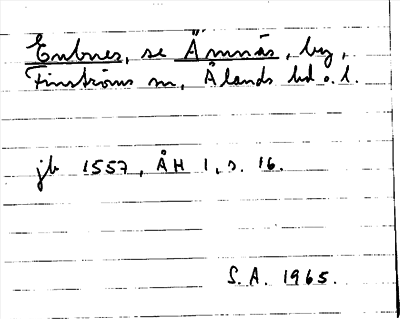 Enbnes, se Ämnäs, by,
Finströms sn, Ålands hd o. l.
jb 1557, ÅH 1, s. 16.
S.A. 1965.